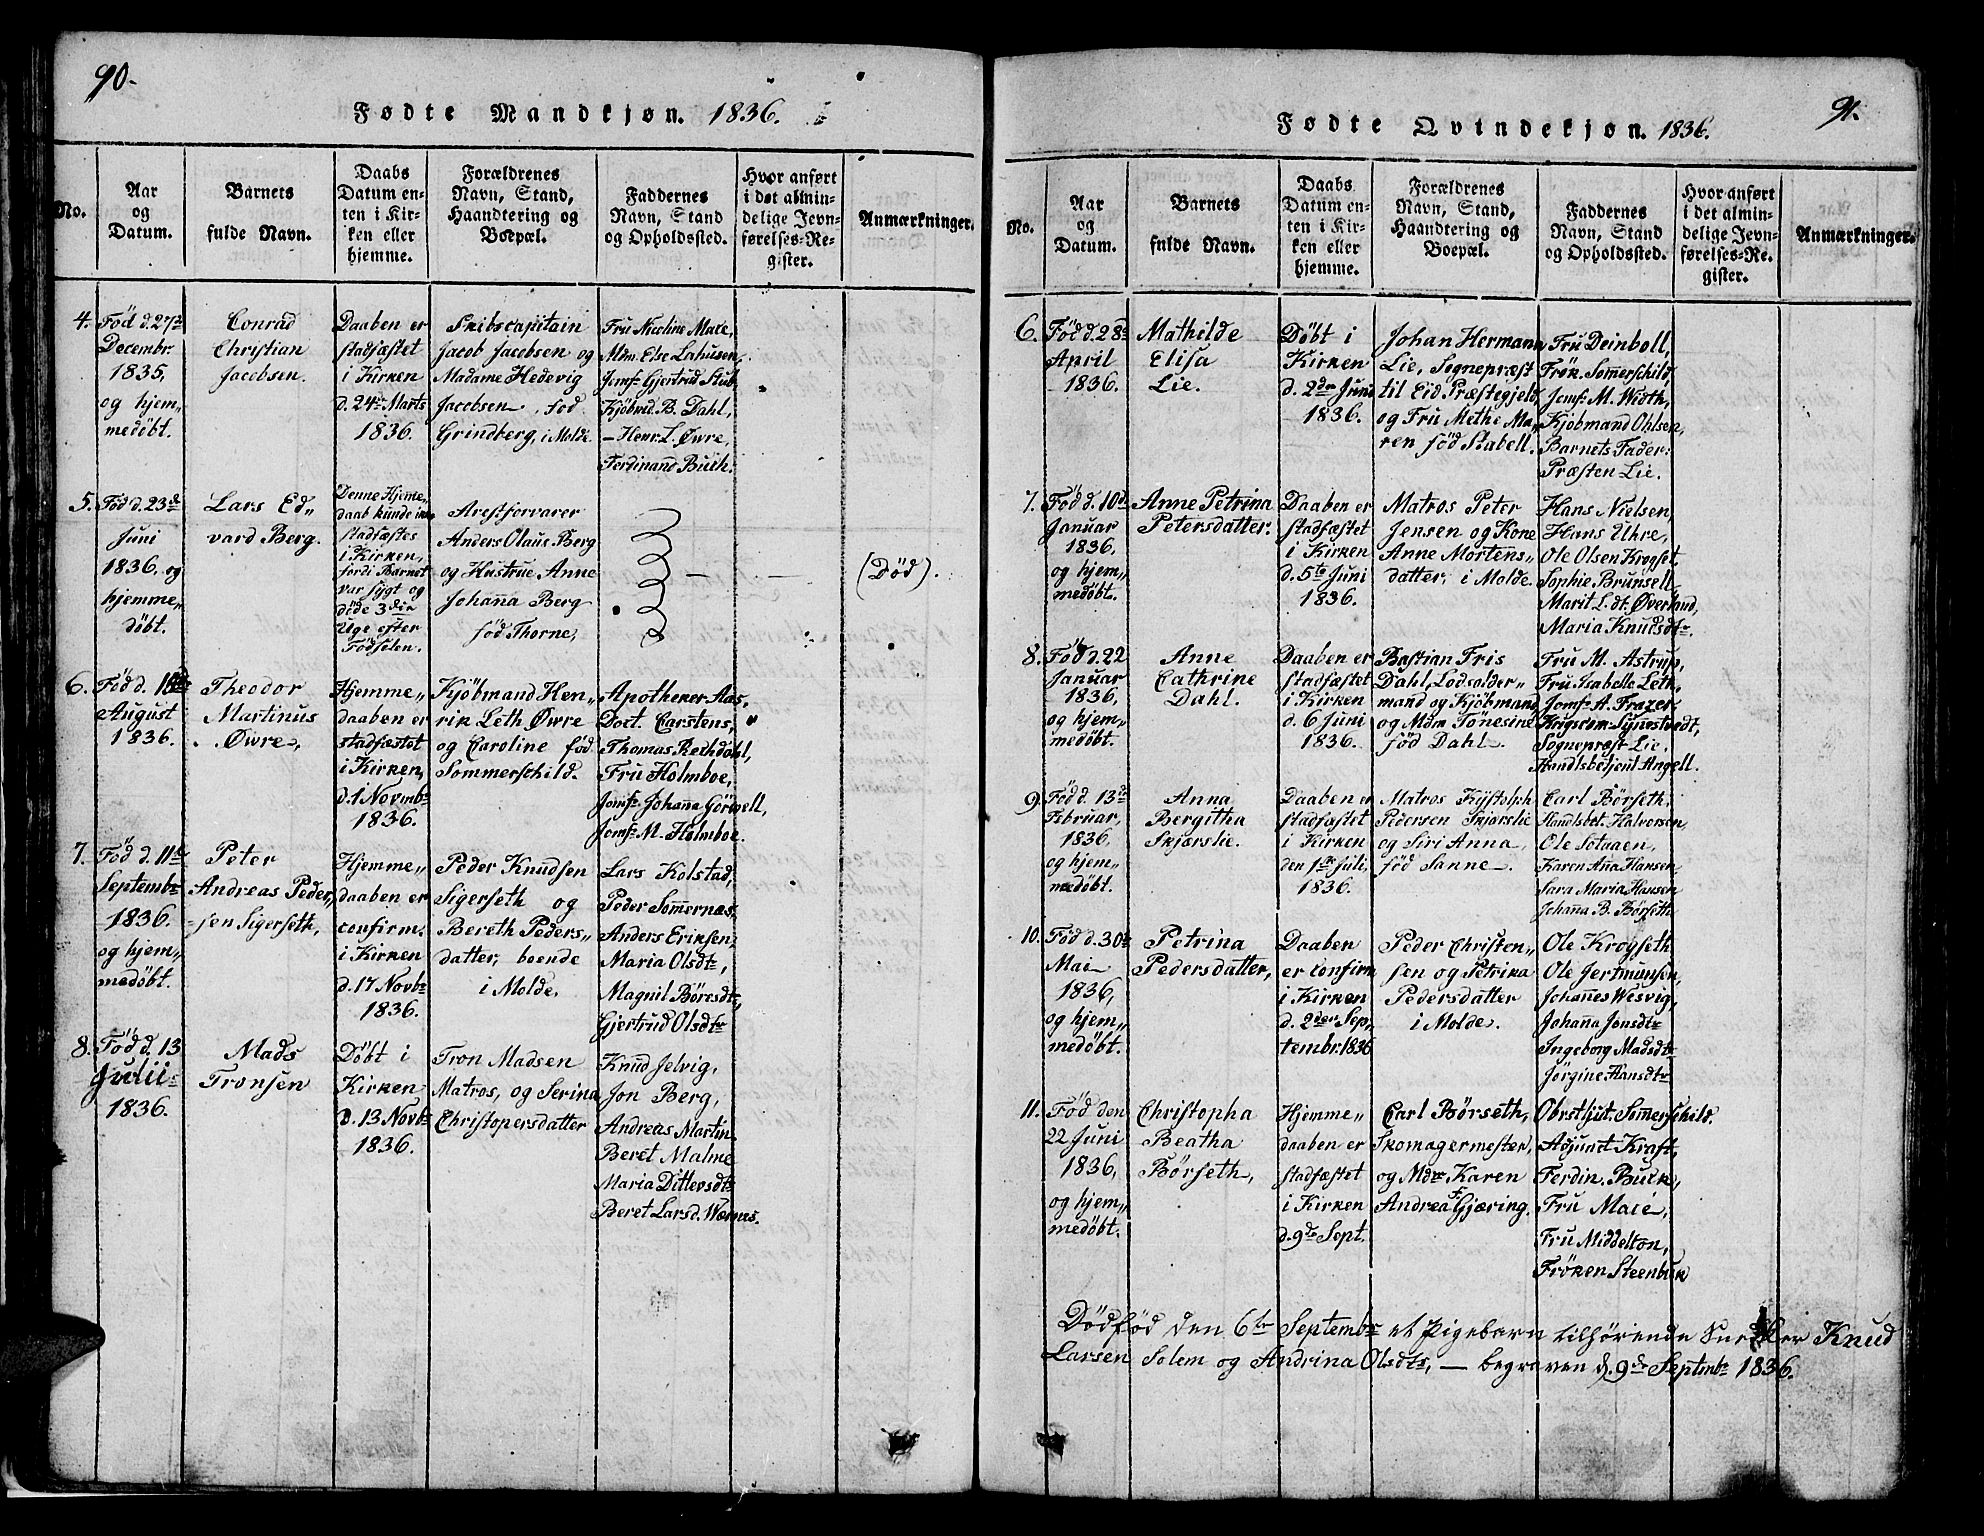 90.
Fødte Mandkjøn. 1836.
No.
Aar
og
Datum.
Barnets
fulde Navn.
Daabs
Datum en-
ten i Kir-
ken eller
hjemme.
Forældrenes
Navn, Stand,
Haandtering og
Boepæl.
Faddernes
Navn, Stand
og Opholdssted.
Hvor anført
i det almin-
delige Jevn-
førelses-Re-
gister.
Anmærkninger.
4.
Fød d. 27de
Decembr.
1835,
og hjem„
medøbt.
Conrad
Christian
Jacobsen.
Daaben er
stadfæstet
i Kirken
d. 24de Marts
1836.
Skibscapitain
Jacob Jacobsen og
Madame Hedevig
Jacobsen, fød
Grindberg, i Molde.
Fru Nicoline Maie,
Mdm Else Lahusen,
Jomfr Gjertrud Stub,
Kjøbmd. B. Dahl,
— Henr. L. Øvre,
Ferdinand Buch.
5.
Fød d. 23de
Juni
1836, og
hjemme„
døbt.
Lars Ed„
vard Berg.
Denne Hjeme„
daab kunde ikke
stadfæstes
i Kirken,
fordi Barnet
var sygt og
døde 3die
Uge efter
Fødselen.
Arestforvarer
Anders Olaus Berg
og Hustrue Anne
Johaña Berg
fød Thorne,
(Død).
6.
Fød d. 18de
August
1836.
Theodor
Martinus
Øvre,
Hjemme„
daaben er
stadfæstet
i Kirken,
d. 1 Novmbr
1836.
Kjøbmand Hen„
rik Leth Øvre
og Caroline fød
Sommerschild.
Apotheker Aas,
Doct. Carstens,
Thomas Rechdahl,
Fru Holmboe,
Jomfr Johaña Görvell,
Jomfr M. Holmboe.
7.
Fød d. 11te
Septembr
1836.
og hjem„
medøbt.
Peter
Andreas Peder„
sen Sigerseth,
Hjemme„
daaben er
confirm.
i Kirken
d. 17 Novbr
1836.
Peder Knudsen
Sigerseth og
Bereth Peders„
datter, boende
i Molde.
Lars Kolstad,
Peder Som̄ernæs,
Anders Eriksen,
Maria Olsdtr,
Magnil Böresdtr,
Gjertrud Olsdtr
8.
Fød d. 13
Julii
1836.
Mads
Tronsen
Døbt i
Kirken
d. 13 Novbr
1836.
Tron Madsen
Matros, og Serina
Christopersdatter
Knud Jelvig,
Jon Berg,
Andreas Martin
Beret Malme
Maria Ditlevsdtr
Beret Larsd. Wærnes.
91.
Fødte Qvindekjøn. 1836.
No.
Aar
og
Datum.
Barnets
fulde Navn.
Daabs
Datum en-
ten i Kir-
ken eller
hjemme.
Forældrenes
Navn, Stand,
Haandtering og
Boepæl.
Faddernes
Navn, Stand
og Opholdssted.
Hvor anført
i det almin-
delige Jevn-
førelses-Re-
gister.
Anmærkninger.
6.
Fød d. 28de
April
1836.
Mathilde
Elisa
Lie.
Døbt i
Kirken
d. 2den Juni
1836.
Johan Hermann
Lie, Sognepræst
til Eid Præstegjeld,
og Fru Methe Ma„
ren fød Stabell.
Fru Deinboll,
Frøk. Som̄erschild,
Jomfr M. Wedth,
Kjøbmand Ohlsen,
Barnets Fader:
Præsten Lie.
7.
Fød d. 10de
Januar
1836,
og hjem„
medøbt.
Anne Petrina
Petersdatter.
Daaben er
stadfæstet
i Kirken
d. 5te Juni
1836.
Matros Peter
Jensen og Kone
Anne Mortens„
datter, i Molde.
Hans Nielsen,
Hans Uhre,
Ole Olsen Krogset,
Sophie Brunsell,
Marit L. dt. Øverland,
Maria Knudsdtr.
8.
Fød d. 22
Januar
1836,
og hjem„
medøbt.
Anne
Cathrine
Dahl.
Daaben er
stadfæstet
i Kirken
d. 6 Juni
1836.
Bastian Fris
Dahl, Lodsolder„
mand og Kjøbmand
og Mdm Tönesine
fød Dahl.
Fru M. Astrup,
Fru Isabelle Leth,
Jomfr A. Frazer,
Krigscom. Synestvedt,
Sognepræst Lie,
Handlsbetjent Angell.
9.
Fød d. 13de
Februar,
1836,
og hjem„
medøbt.
Anna
Bergitha
Skjærslie.
Daaben er
stadfæstet
i Kirken
den 1ste Juli,
1836.
Matros Kristoph
Pedersen Skjærslie
og Siri Anna,
fød Sanne.
Carl Børseth,
Handlsbet. Halvorsen,
Ole Sotaaen,
Karen Aña Hansen
Sara Maria Hansen
Johaña B. Børseth
10.
Fød d. 30te
Mai
1836,
og hjem„
medøbt.
Petrina
Pedersdatter,
Daaben
er confirm
i Kirken
d. 2den Sep„
tembr. 1836
Peder Christen„
sen og Petrina
Pedersdatter
i Molde.
Ole Krogseth
Ole Jertmunsen,
Johañes Wesvig,
Johaña Jonsdtr
Ingeborg Madsdtr
Jørgine Hansdtr
11.
Fød den
22 Juni
1836,
og hjem„
medøbt.
Christopha
Beatha
Børseth,
Hjemme„
daaben er
stadfæstet
i Kirken
d. 9de Sept.
Carl Børseth,
Skomagermester,
og Mdm Karen
Andrea F Gjæring.
Obrstljut. Som̄erschild.
Adjunct Kraft,
Ferdin. Buck,
Fru Maie,
Fru Middelton,
Frøken Steenbuk
Dødfød den 6te Septembr et Pigebarn tilhørende Snedker Knud
Larsen Solem og Andrina Olsdtr, — begraven d. 9de Septmbr 1836.